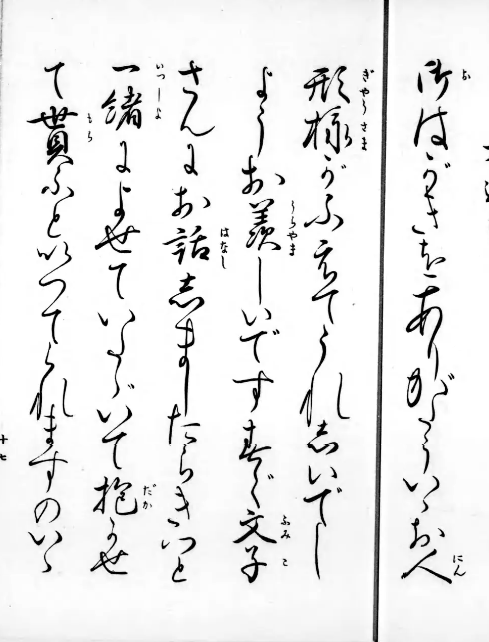 御はがきをありがたういゝお人
形様がふえてうれしいでし
ようお羨しいですすぐ文子
さんにお話しましたらきつと
一緒によせていたゞいて抱かせ
て貰ふといつてられますのいゝ
十七